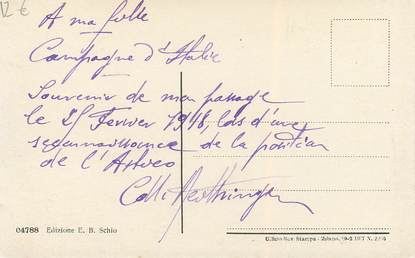 12 €
A ma
Campagne d'Italie
Souvenir de mon passage
le 25 Fevrier 1918, lors d'une
reconnaissance de la position
de l'
04788 Edizione E. B. Schio
Ufficio Rev. Stampa - Milano,